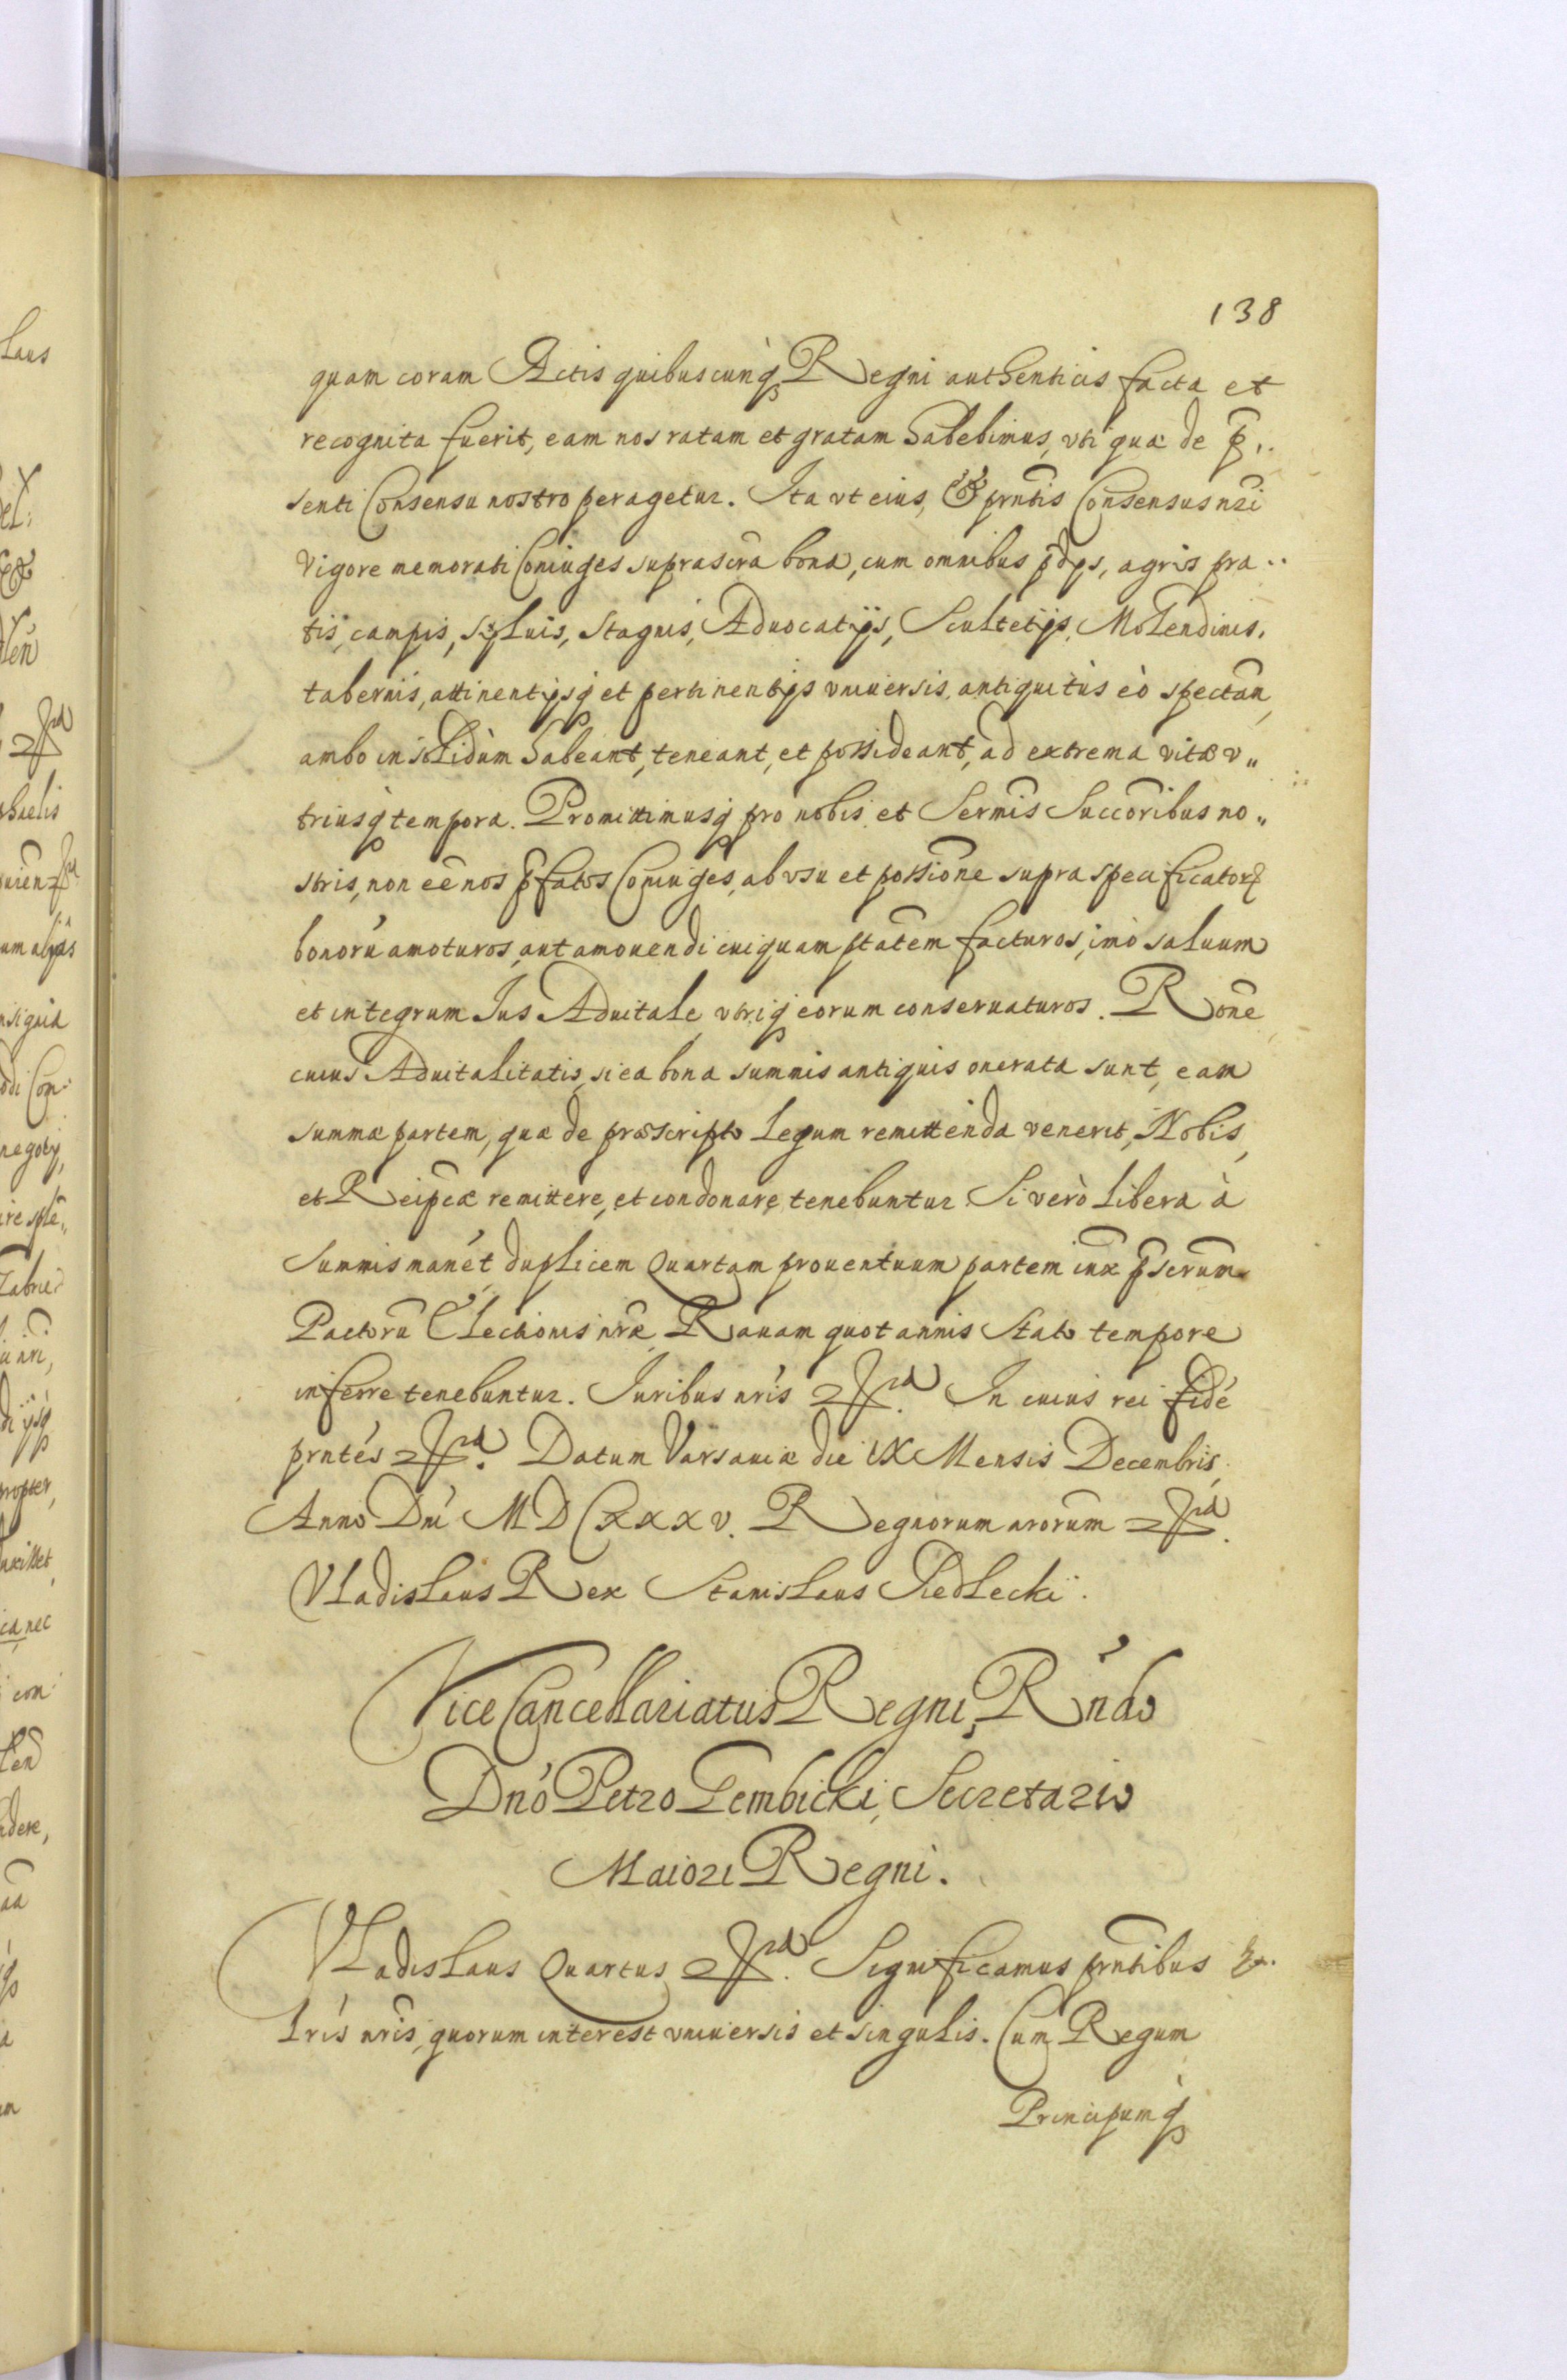 138
quam coram Actis quibuscunq̀ Regni authenticis facta et
recognita fuerit, eam nos ratam et gratam habebimus, vti quæ de p̃..
senti Consensu nostro peragetur. Ita vt eius, & prñtis Consensus nr̃i
Vigore memorati Coniuges suprascr̃a bona, cum omnibus p̃dijs, agris pra..
tis, campis, syluis, stagnis, Aduocatijs, Scultetijs, Molendinis,
tabernis, attinentijsq et pertinentijs vniuersis, antiquitùs eò spectañ,
ambo in solidùm habeant, teneant, et possideant, ad extrema vitæ v„
triusq tempora. Promittimusq pro nobis et Sermis Succoribus no„
stris, non eẽ nos p̃fatos Coniuges, ab vsu et possiõne supra specificatorꝝ
bonorú amoturos, aut amouendi cuiquam ptatẽm facturos, imò saluum
et integrum Ius Aduitale vtriq eorum conseruaturos. Rõne
cuius Aduitalitatis, si ea bona summis antiquis onerata sunt, eam
summæ partem, quæ de præscripto Legum remittenda venerit, Nobis,
et Reipcæ remittere, et condonare tenebuntur. Si verò libera à
summis manét, duplicem Quartam prouentuum partem iux̃ p̃scrũm
Pactorũ Electionis nr̃æ, Rauam quotannis Stato tempore
inferre tenebuntur. Iuribus nrís In cuius rei fidé
prntés Datum Varsauiæ die IX Mensis Decembris,
Anno Dní MDCXXXV. Regnorum nrorũm
Vladislaus Rex Stanislaus Siedlecki.
Vice Cancellariatus Regni, Rńdo
Dnó Petro Gembicki, Secretario
Maiori Regni.
Vladislaus Quartus Significamus prñtibus
Lrís nrĩs, quorum interest vniuersis et singulis. Cum Regum
Principumq̀